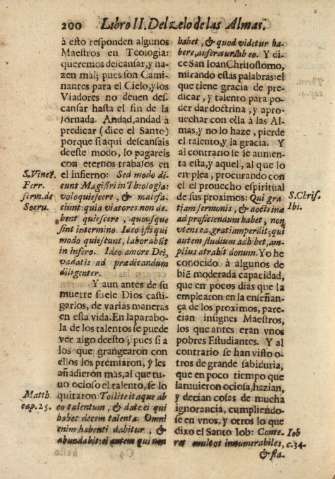 200 Libro II. Del zelo de las Almas.
à esto responden algunos
Maestros en Teologia:
queremos descansar, y na-
zen mal; pues son Cami-
nantes para el Cielo, y los
Viadores no deuen des-
cansar hasta el fin de la
jornada. Andad, andad à
predicar (dice el Santo)
porque si aqui descansais
deste modo, lo pagareis
con eternos trabajos en
S. Vinct. el infierno: Sed modo di-
Ferr. cunt Magistri in Theologia:
serm. de volo quiescere, & malè fa-
Socru. ciunt: quia viatores non de-
bent quiescere, quousque
sint in termino. Ideo isti qui
modo quiescunt, laborabũt
in infero. Ideo amore Dei,
vadatis ad prædicandum
diligenter.
Y aun antes de su
muerte suele Dios casti-
garlos, de varias maneras
en esta vida. En la parabo-
la de los talentos se puede
ver algo desto; pues si a
los que grangearon con
ellos los premiaron, y les
añadieron mas, al que tu-
uo ocioso el talento, se lo
Matth. quitaron: Tollite itaque ab
cap. 25. eo talentum, & date ei qui
habet decem talenta: Omni
enim habenti dabitur, &
abundabit: ei autem qui non
habet, & quod videtur ha-
bere, auferetur ab eo. Y di-
ce San Ioan Chrisostomo,
mirando estas palabras: el
que tiene gracia de pre-
dicar, y talento para po-
der dar doctrina, y apro-
uechar con ella à las Al-
mas, y no lo haze, pierde
el talento, y la gracia. Y
al contrario se le aumen-
ta esta, y aquel, al que lo
emplea, procurando con
el el prouecho espiritual
de sus proximos: Qui gra- S. Chris.
tiam sermonis, & doctrinæ Ibi.
ad proficiendum habet, non
vtens ea, gratiam perdit; qui
autem studium adhibet, am-
plius atrahit donum. Yo he
conocido à algunos de
biẽ moderada capacidad,
que en pocos dias que la
emplearon en la enseñan-
ça de los proximos, pare-
cian insignes Maestros,
los que antes eran vnos
pobres Estudiantes. Y al
contrario se han visto o-
tros de grande sabiduria,
que en poco tiempo que
la tuuieron ociosa, hazian,
y decian cosas de mucha
ignorancia, cumpliendo-
se en vnos, y otros lo que
dixo el Santo Iob: Conte- Iob
ret multos innumerabiles, c. 34.
& sta-